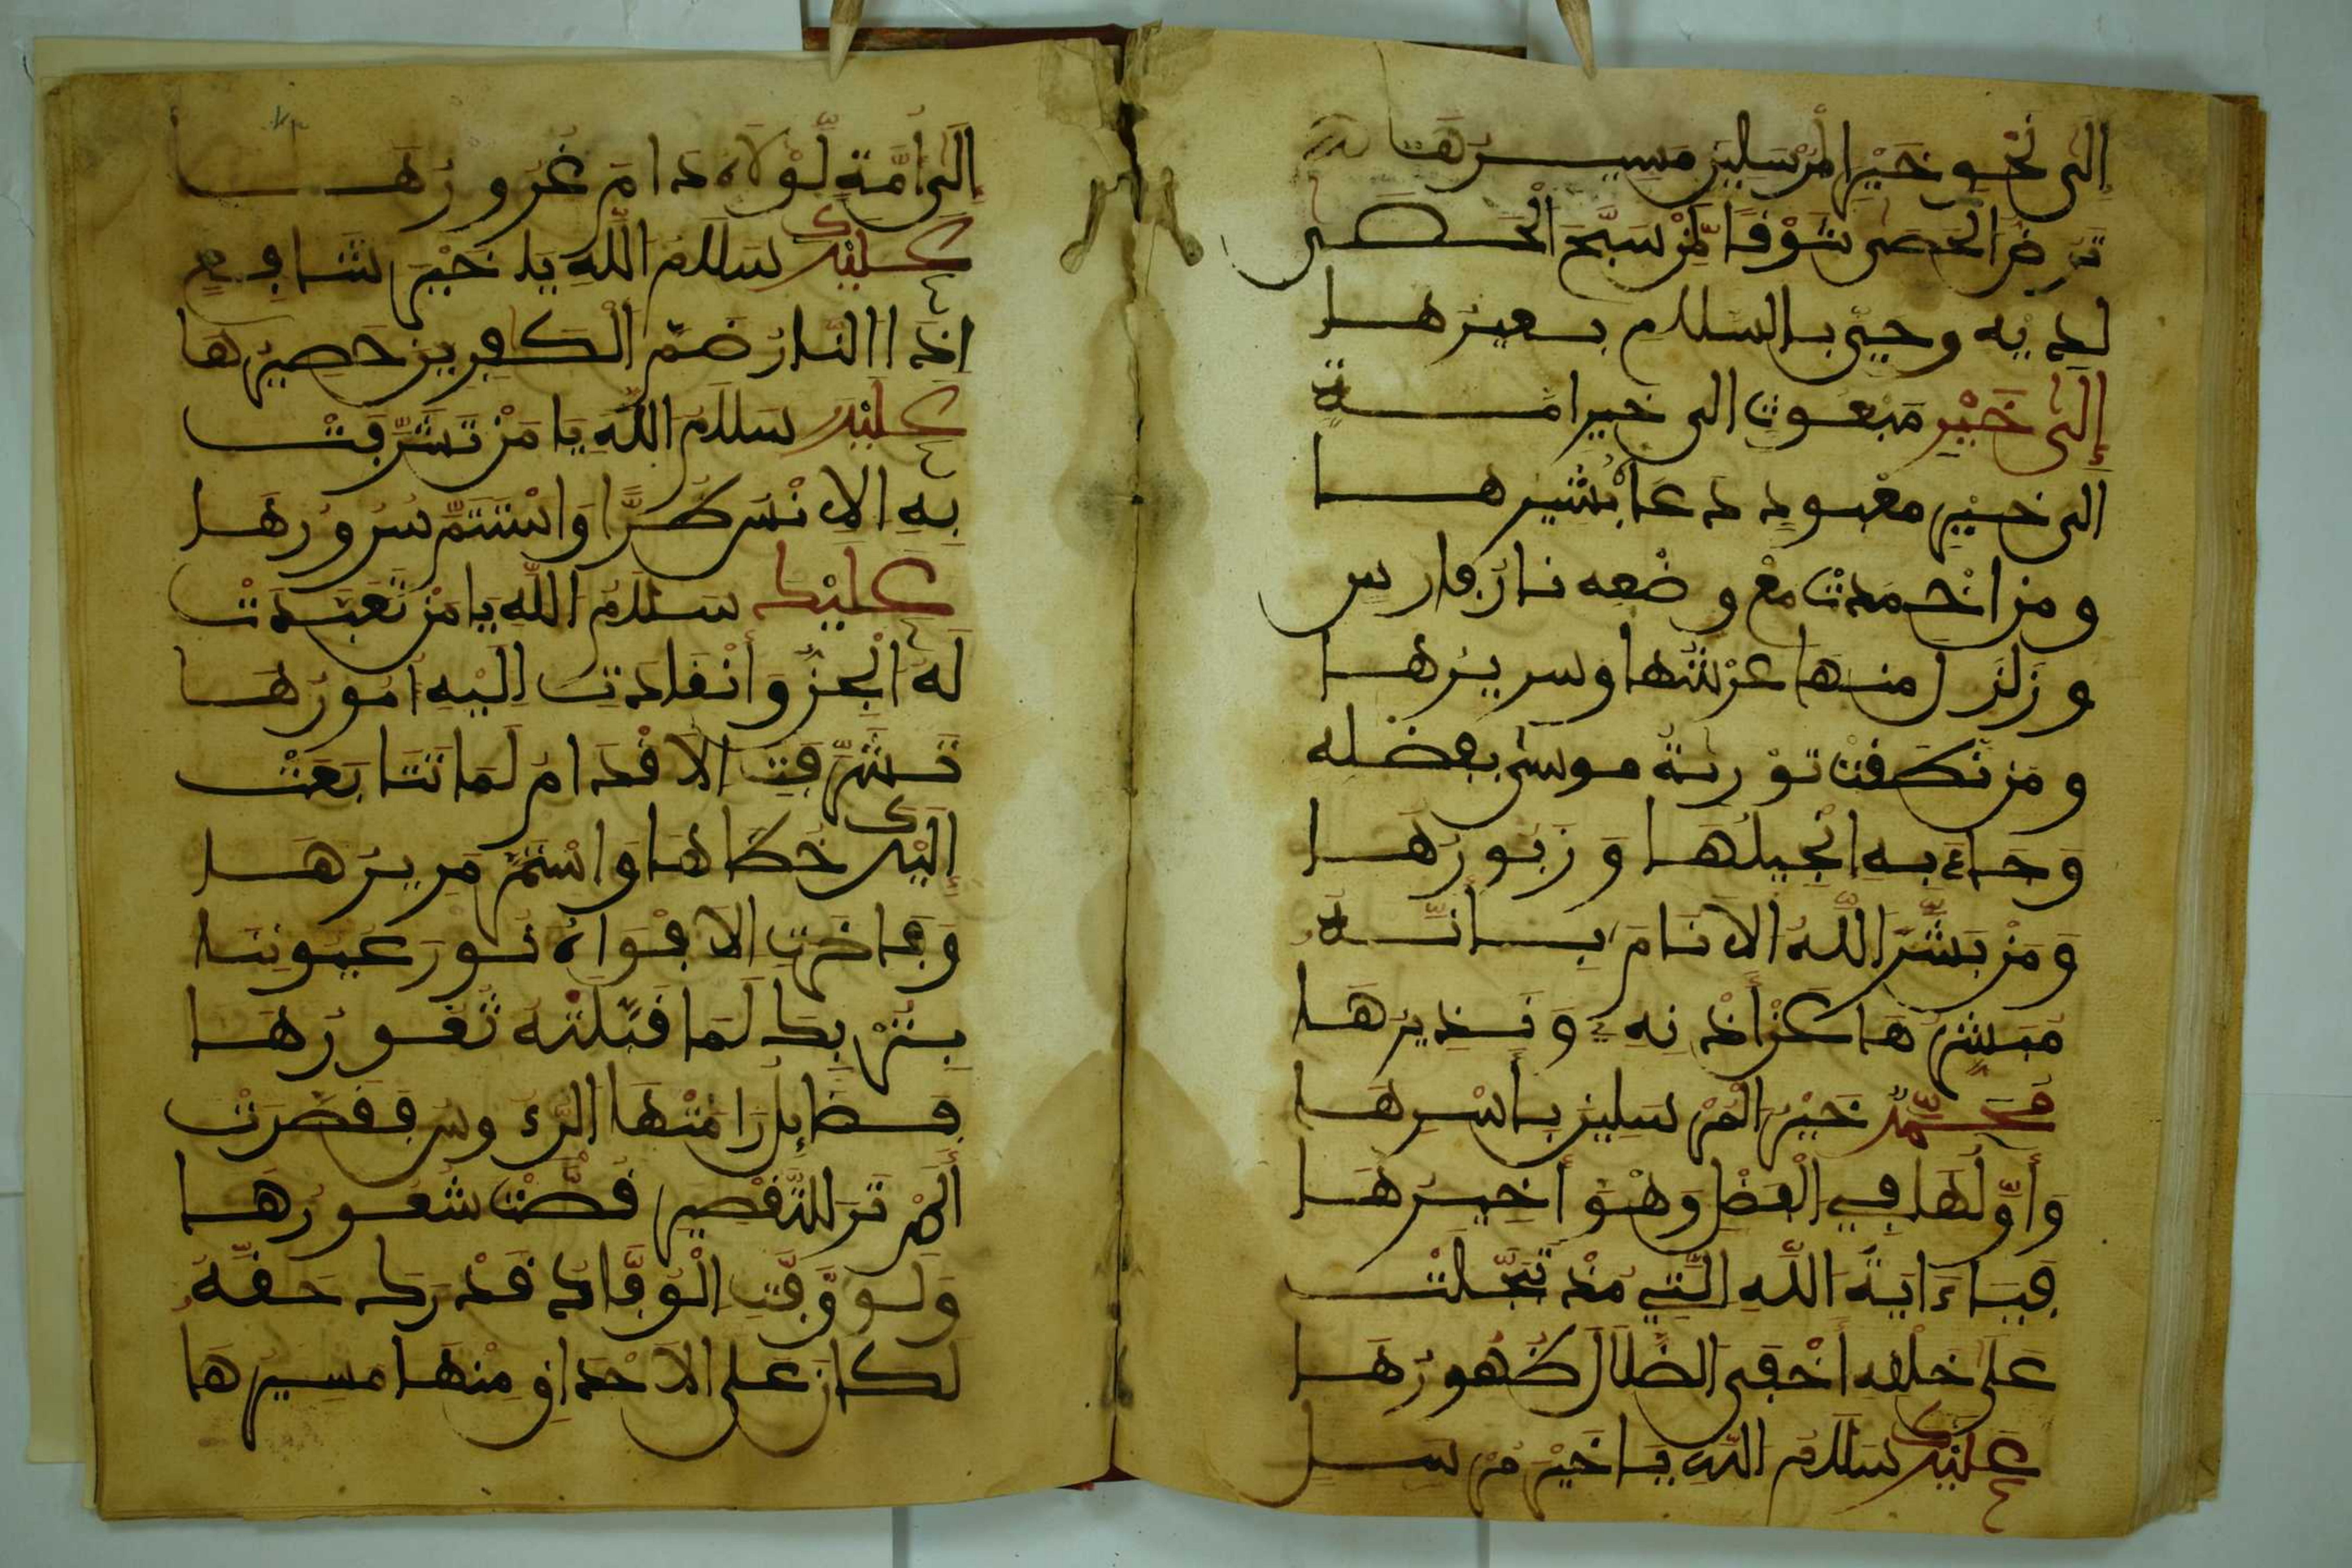 إِلَى نَحْوِ خَيْرِ الْمُرْسَلِينَ مَسِيرُهَا
تَرُضُّ الْحَصَى شَوْقًا لِّمَنْ سَبَّحَ الْحَصَى
لديه وحيى بالسلام بعيرها
إِلَى خَيْرِ مَبْعُوثٍ الى خير امة
الى خير معبود دعا بشيرها
ومن اخمدت مع وضعه نار فارس
وزلزل منها عرشها وسريرها
ومن نطقت تورية موسى بفضله
وَجَاءَ بِهِ انْجِيلُهَا وَزَبُورُهَا
وَمَنْ بَشَّرَ اللَّهُ الانَامَ بِأَنَّهُ
مُبَشِّرُهَا عَنْ أَذْنِهِ وَنَذِيرُهَا
مُحَمَّدُ خَيْرُ الْمُرْسَلِينَ بِأَسْرِهَا
وَأَوَّلُهَا فِي الْفَضْلِ وَهْوَ أَخِيرُهَا
فَيَا ءَايَةَ اللَّهِ الَّتِي مُذْ تَجَلَّتْ
عَلَى خَلْقِهِ أَخْفَى الضَّلَالَ ظُهُورُهَا
عَلَيْكَ سَلَامُ اللَّهِ يَا خَيْرَ مُرْسَلٍ
إِلَى أُمَّةٍ لَّوْلَاهُ دَامَ غُرُورُهَا
عَلَيْكَ سَلَامُ اللَّهِ يَا خَيْرَ شَافِعٍ
إِذَا النَّارُ ضَمَّ الْكَافِرِينَ حَصِيرُهَا
عَلَيْكَ سَلَامُ اللَّهِ يَا مَنْ تَشَرَّفَتْ
بِهِ الانْسُ طُرًّا وَاسْتَتَمَّ سُرُورُهَا
عَلَيْكَ سَلَامُ اللَّهِ يَا مَنْ تَعَبَّدَتْ
لَهُ الْجِنُّ وَأَنْقَادَتِ إِلَيْهِ أُمُورُهَا
تَشَرَّفَتِ الاقْدَامُ لَمَا تَتَابَعَتْ
إِلَيْكَ خُطَاهَا وَاسْتَمَرَّ مَرِيرُهَا
وَفَاخَرَتِ الافْوَاهُ نُورَ عُيُونِنَا
بِتُرْبِكَ لَمَا قَبَّلَتْهُ ثُغُورُهَا
فَضَائِلُ رَامَتْهَا الرُّءُوسُ فَقَصَّرَتْ
أَلَمْ تَرَ لِلتَّقْصِيرِ قُصَّتْ شُعُورُهَا
وَلَوْ وَفَّتِ الْوُفَّادُ قَدْرَكَ حَقَّهُ
لَكَانَ عَلَى الاحْدَاقِ مِنْهَا مَسِيرُهَا